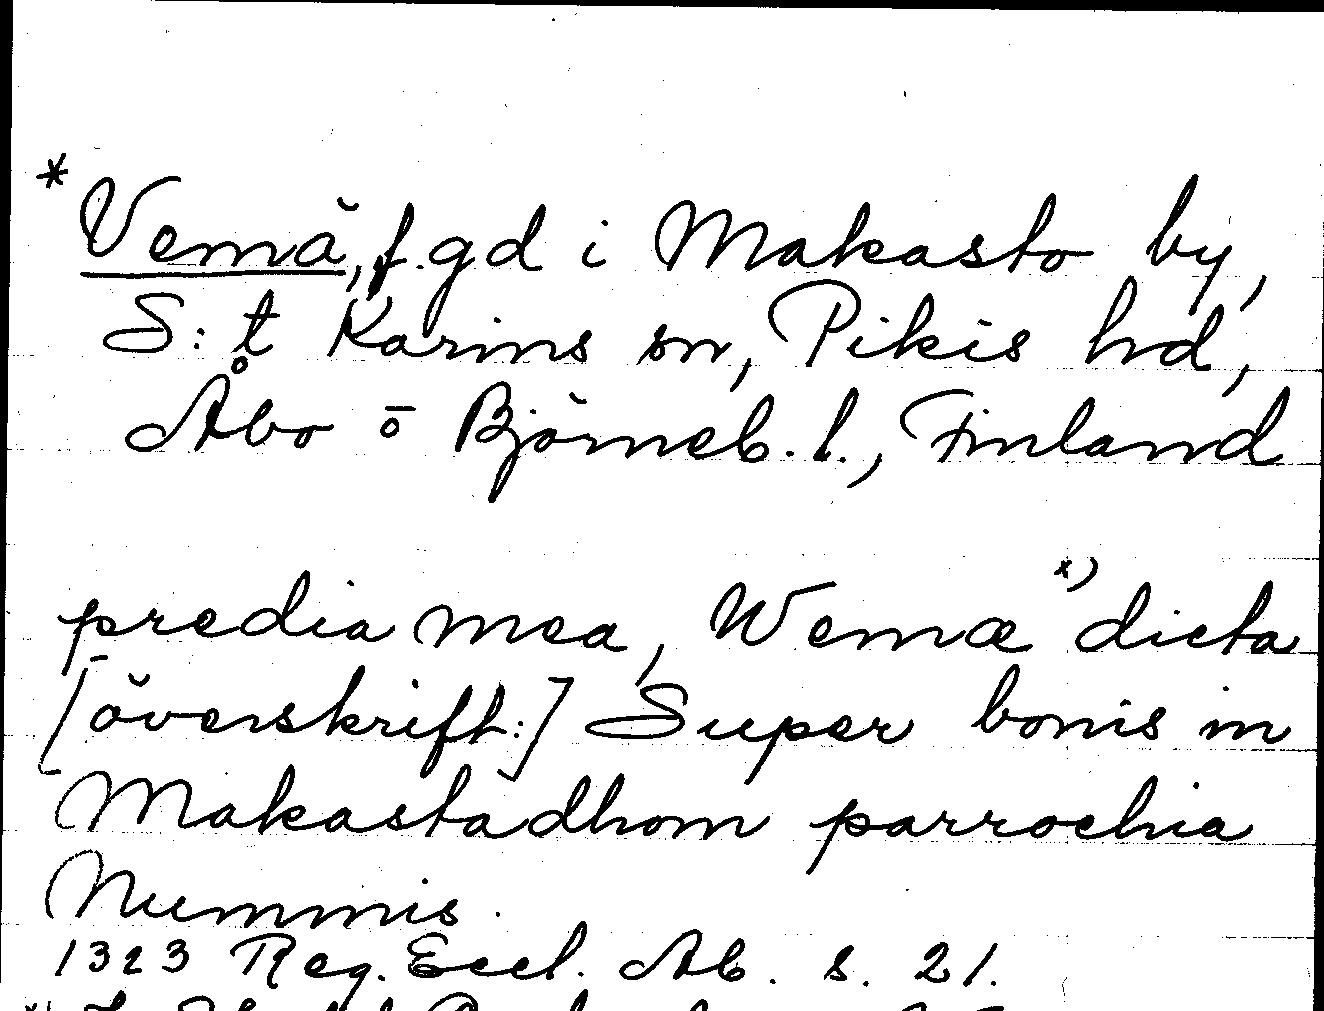 * Vemä, f. gd i Makasto by,
S:t Karins sn, Pikis hd,
Åbo o Björneb. l., Finland
predia mea, Wemæ x) dicta
[överskrift:] Super bonis in
Makastadhom parrochia
Nummis.
1323 Reg. Eccl. Ab. s. 21.